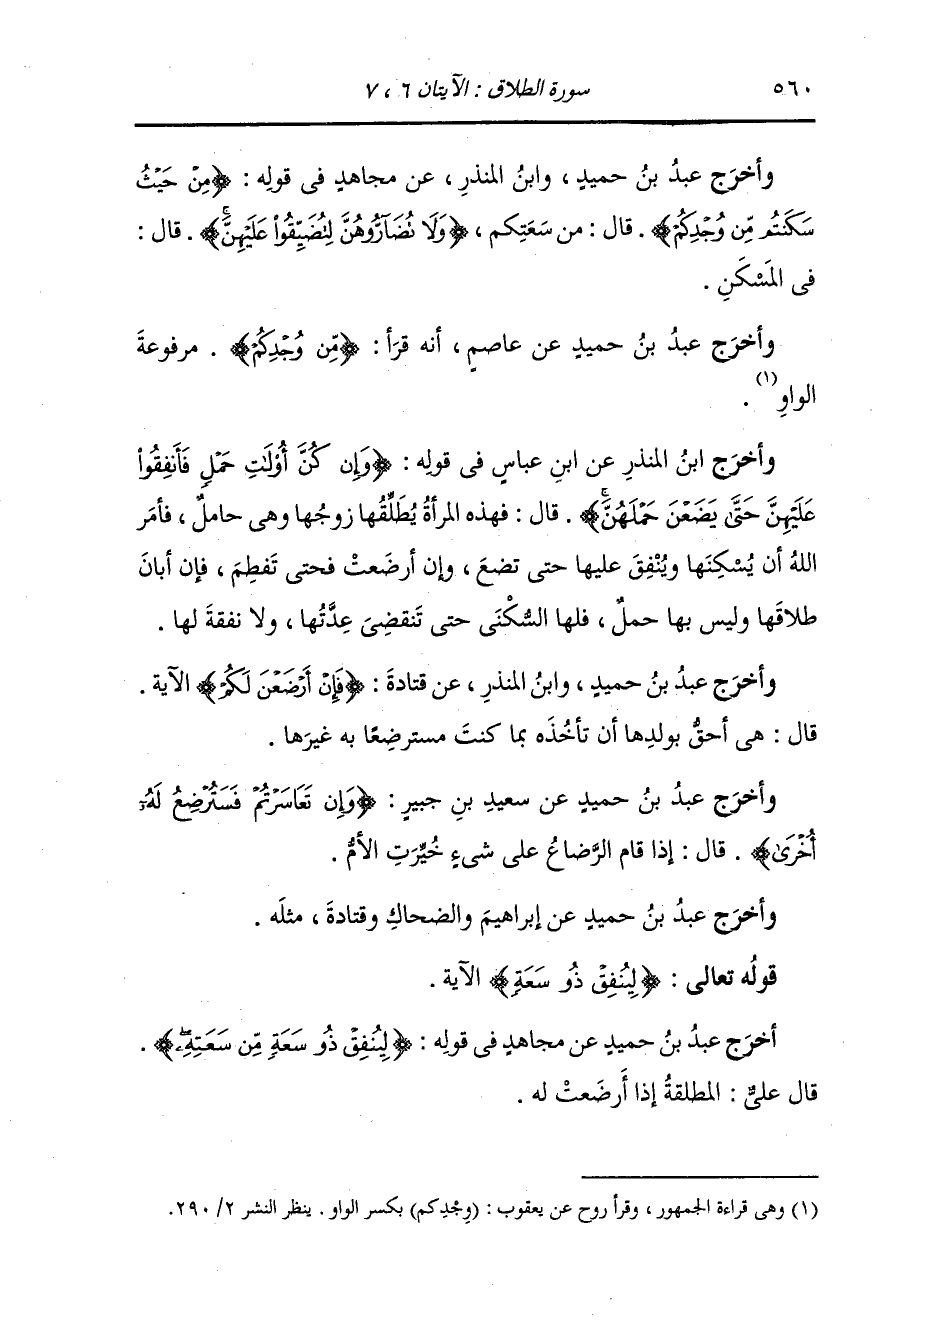 ٥٦٠ سورة الطلاق : الآيتان ٦ ، ٧
وأخرَج عبدُ بنُ حميدٍ ، وابنُ المنذرِ ، عن مجاهدٍ فى قولِه : ﴿مِنْ حَيْثُ
سَكَنتُم مِّن وُجْدِكُمْ﴾ . قال : من سَعَتِكم ، ﴿وَلَا نُضَآرُّوهُنَّ لِنُضَيِّقُوا۟ عَلَيْهِنَّۚ﴾ . قال :
فى المَسْكَنِ .
وأخرَج عبدُ بنُ حميدٍ عن عاصمٍ ، أنه قرَأ : ﴿مِّن وُجْدِكُمْ﴾ . مرفوعةَ
الواوِ(١) .
وأخرَج ابنُ المنذرِ عن ابنِ عباسٍ فى قولِه : ﴿وَإِن كُنَّ أُو۟لَٰتِ حَمْلٍ فَأَنفِقُوا۟
عَلَيْهِنَّ حَتَّىٰ يَضَعْنَ حَمْلَهُنَّۚ﴾ . قال : فهذه المرأةُ يُطَلِّقُها زوجُها وهى حاملٌ ، فأمَر
اللهُ أن يُسْكِنَها ويُنْفِقَ عليها حتى تضعَ ، وإن أرضَعتْ فحتى تَفطِمَ ، فإن أبانَ
طلاقَها وليس بها حملٌ ، فلها السُّكْنَى حتى تَنقضِىَ عِدَّتُها ، ولا نفقةَ لها .
وأخرَج عبدُ بنُ حميدٍ ، وابنُ المنذرِ ، عن قتادةَ : ﴿فَإِنْ أَرْضَعْنَ لَكُمْ﴾ الآية .
قال : هى أحقُّ بولدِها أن تأخُذَه بما كنتَ مسترضِعًا به غيرَها .
وأخرَج عبدُ بنُ حميدٍ عن سعيدِ بنِ جبيرٍ : ﴿وَإِن تَعَاسَرْتُمْ فَسَتُرْضِعُ لَهُۥٓ
أُخْرَىٰ﴾ . قال : إذا قام الرَّضاعُ على شىءٍ خُيِّرَتِ الأمُّ .
وأخرَج عبدُ بنُ حميدٍ عن إبراهيمَ والضحاكِ وقتادةَ ، مثلَه .
قولُه تعالى : ﴿لِيُنفِقْ ذُو سَعَةٍ﴾ الآية .
أخرَج عبدُ بنُ حميدٍ عن مجاهدٍ فى قولِه : ﴿لِيُنفِقْ ذُو سَعَةٍ مِّن سَعَتِهِۦۖ﴾ .
قال علىٌّ : المطلقةُ إذا أَرضَعتْ له .
(١) وهى قراءة الجمهور ، وقرأ روح عن يعقوب : (وِجْدِكم) بكسر الواو . ينظر النشر ٢/ ٢٩٠.